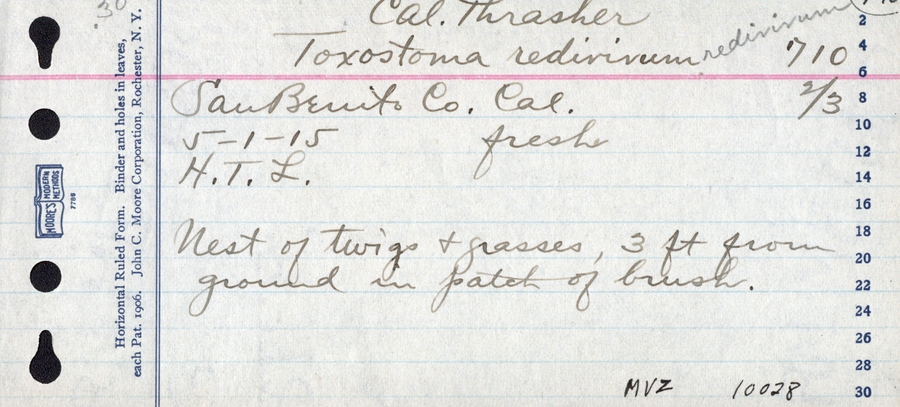 .30
Cal. Thrasher
Toxostoma redivivum redivivum 710
San Benito Co. Cal. 2/3
5-1-15 fresh
H. T. L.
Nest of twigs + grasses, 3 ft from
ground in patch of brush.
MVZ 10028
Horizontal Ruled Form. Binder and holes in leaves,
each Pat. 1906. John C. Moore Corporation, Rochester, N. Y.
MOORE'S MODERN METHODS
7786
2
4
6
8
10
12
14
16
18
20
22
24
26
28
30